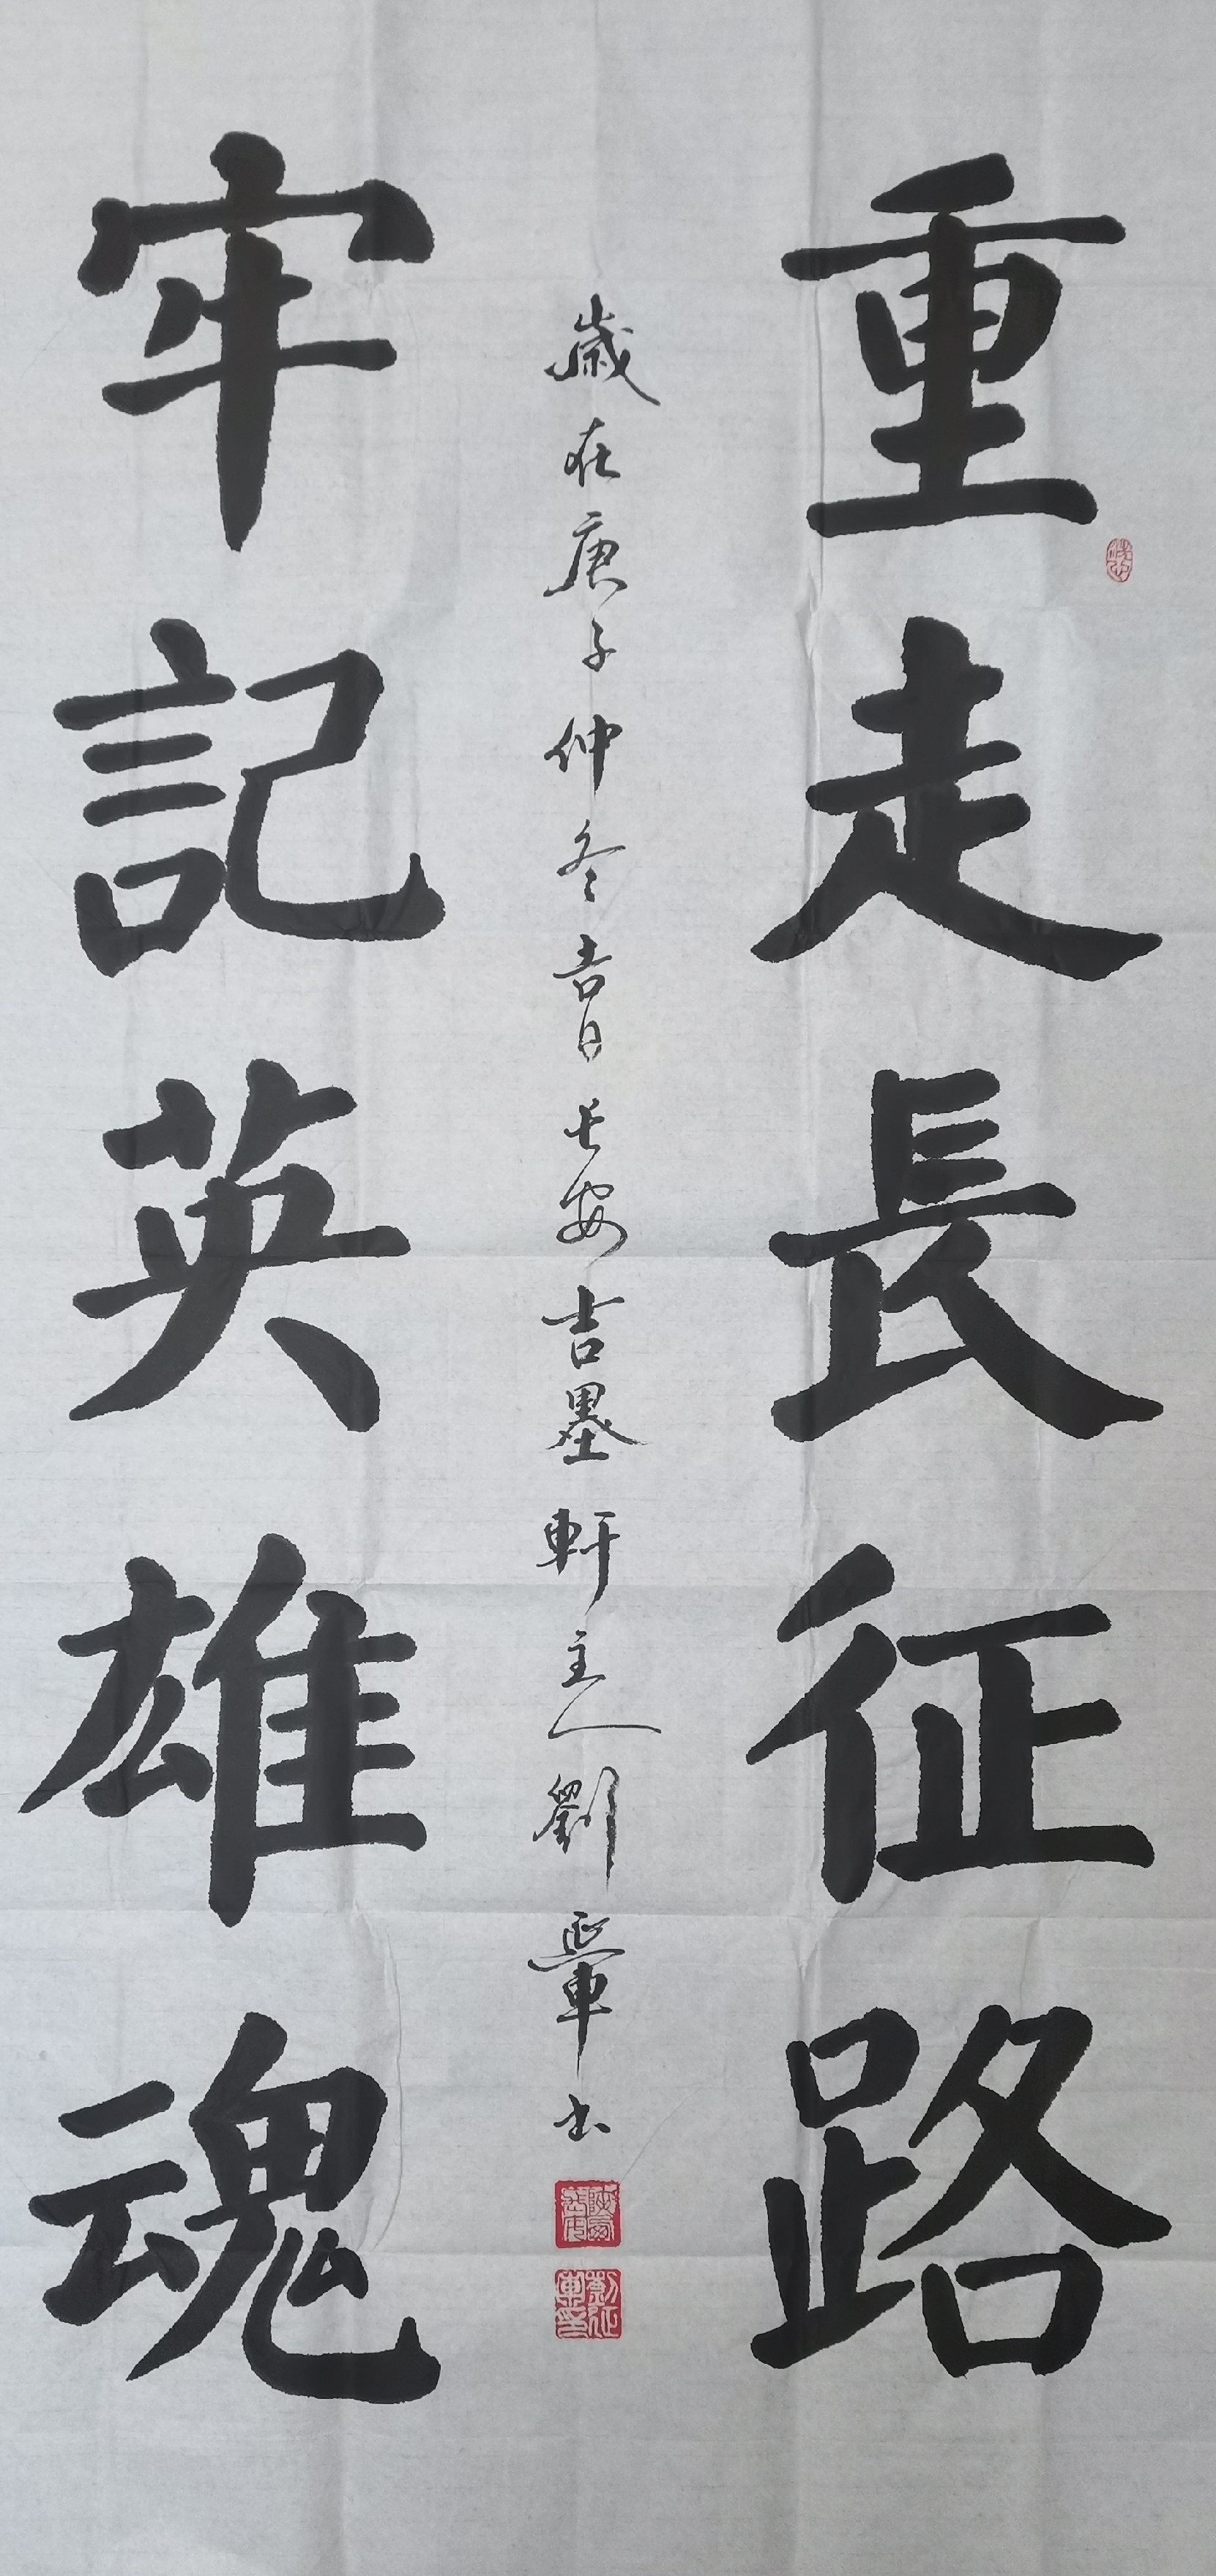 重走長征路
牢記英雄魂
歲在庚子仲冬吉日長安吉墨軒主人劉書